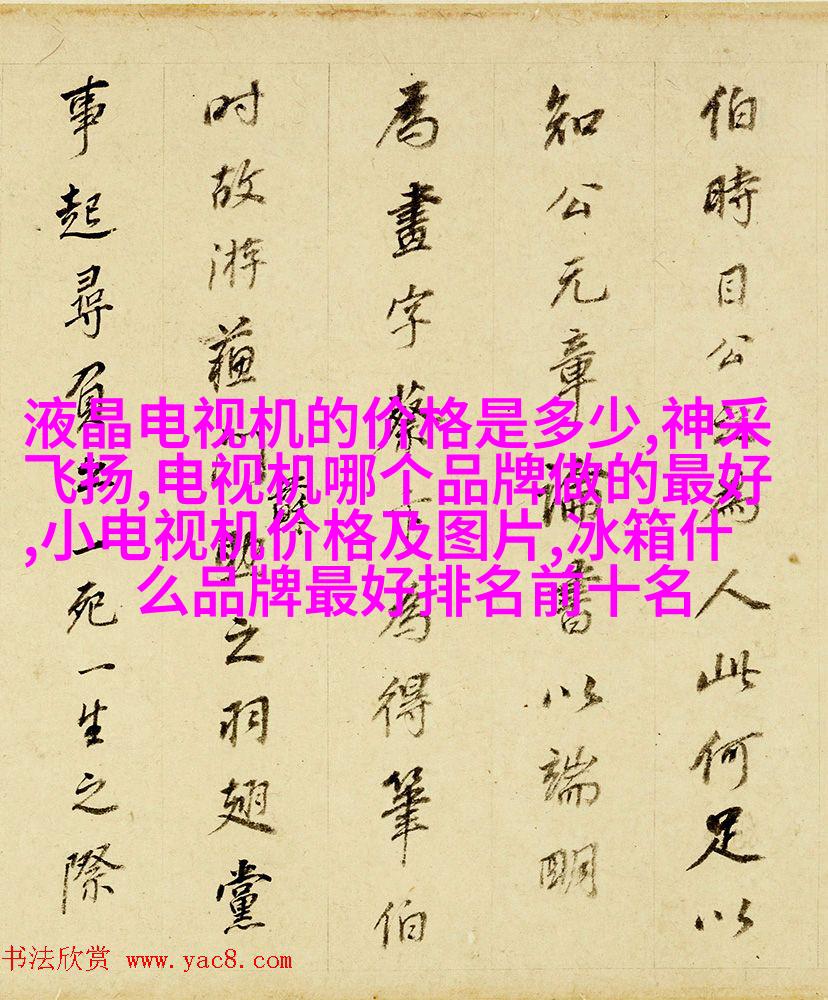 伯時目公為人此何足以
知公元章論書以端明
為畫字蔡為得筆伯
时故游蘓之羽翅黨
事起尋負一死一生之際
液晶电视机的价格是多少,神采
飞扬,电视机哪个品牌做的最好
,小电视机价格及图片,冰箱什
么品牌最好排名前十名
书法欣赏 www.yac8.com